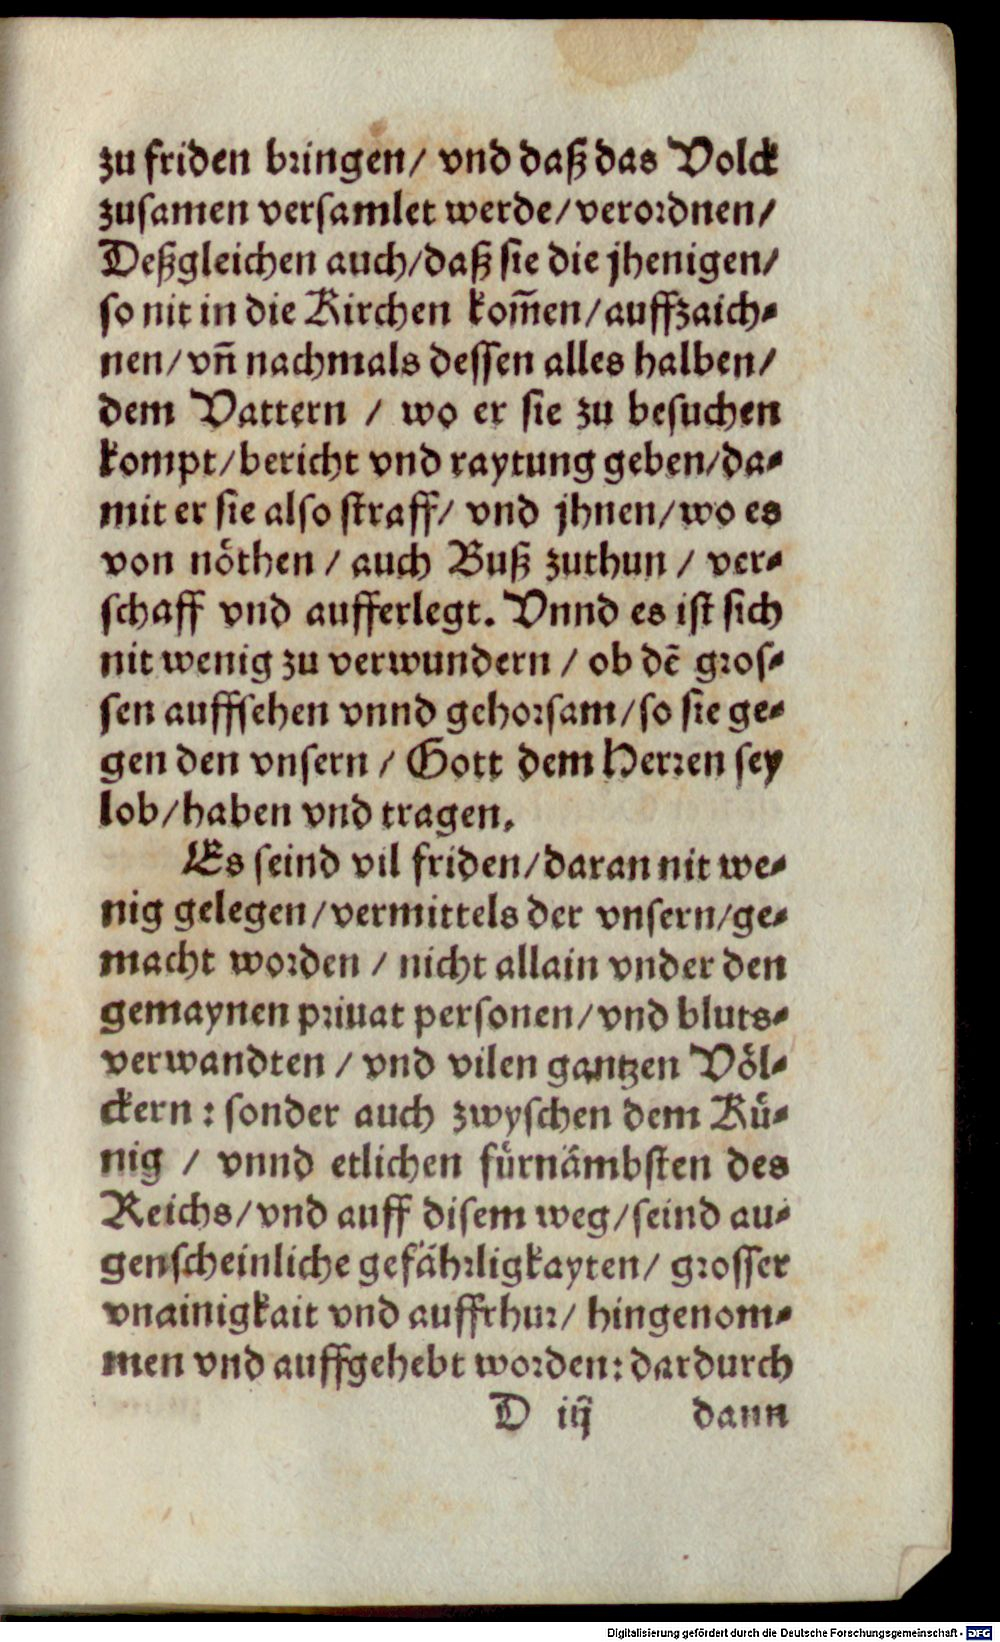 zu friden bringen/ vnd daß das Volck
zusamen versamlet werde/verordnen/
Deßgleichen auch/daß sie die jhenigen/
so nit in die Kirchen kom̄en/auffzaich-
nen/vn̄ nachmals dessen alles halben/
dem Vattern / wo er sie zu besuchen
kompt/bericht vnd raytung geben/da-
mit er sie also straff/ vnd jhnen/wo es
von nöthen / auch Buß zuthun / ver-
schaff vnd aufferlegt. Vnnd es ist sich
nit wenig zu verwundern / ob dē gros-
sen auffsehen vnnd gehorsam/so sie ge-
gen den vnsern / Gott dem Herren sey
lob/haben vnd tragen.
Es seind vil friden/daran nit we-
nig gelegen/vermittels der vnsern/ge-
macht worden / nicht allain vnder den
gemaynen priuat personen/vnd bluts-
verwandten / vnd vilen gantzen Völ-
ckern : sonder auch zwyschen dem Kü-
nig / vnnd etlichen fürnämbsten des
Reichs/vnd auff disem weg/seind au-
genscheinliche gefährligkayten/ grosser
vnainigkait vnd auffrhur/ hingenom-
men vnd auffgehebt worden: dardurch
D iij dann
Digitalisierung gefördert durch die Deutsche Forschungsgemeinschaft - DFG